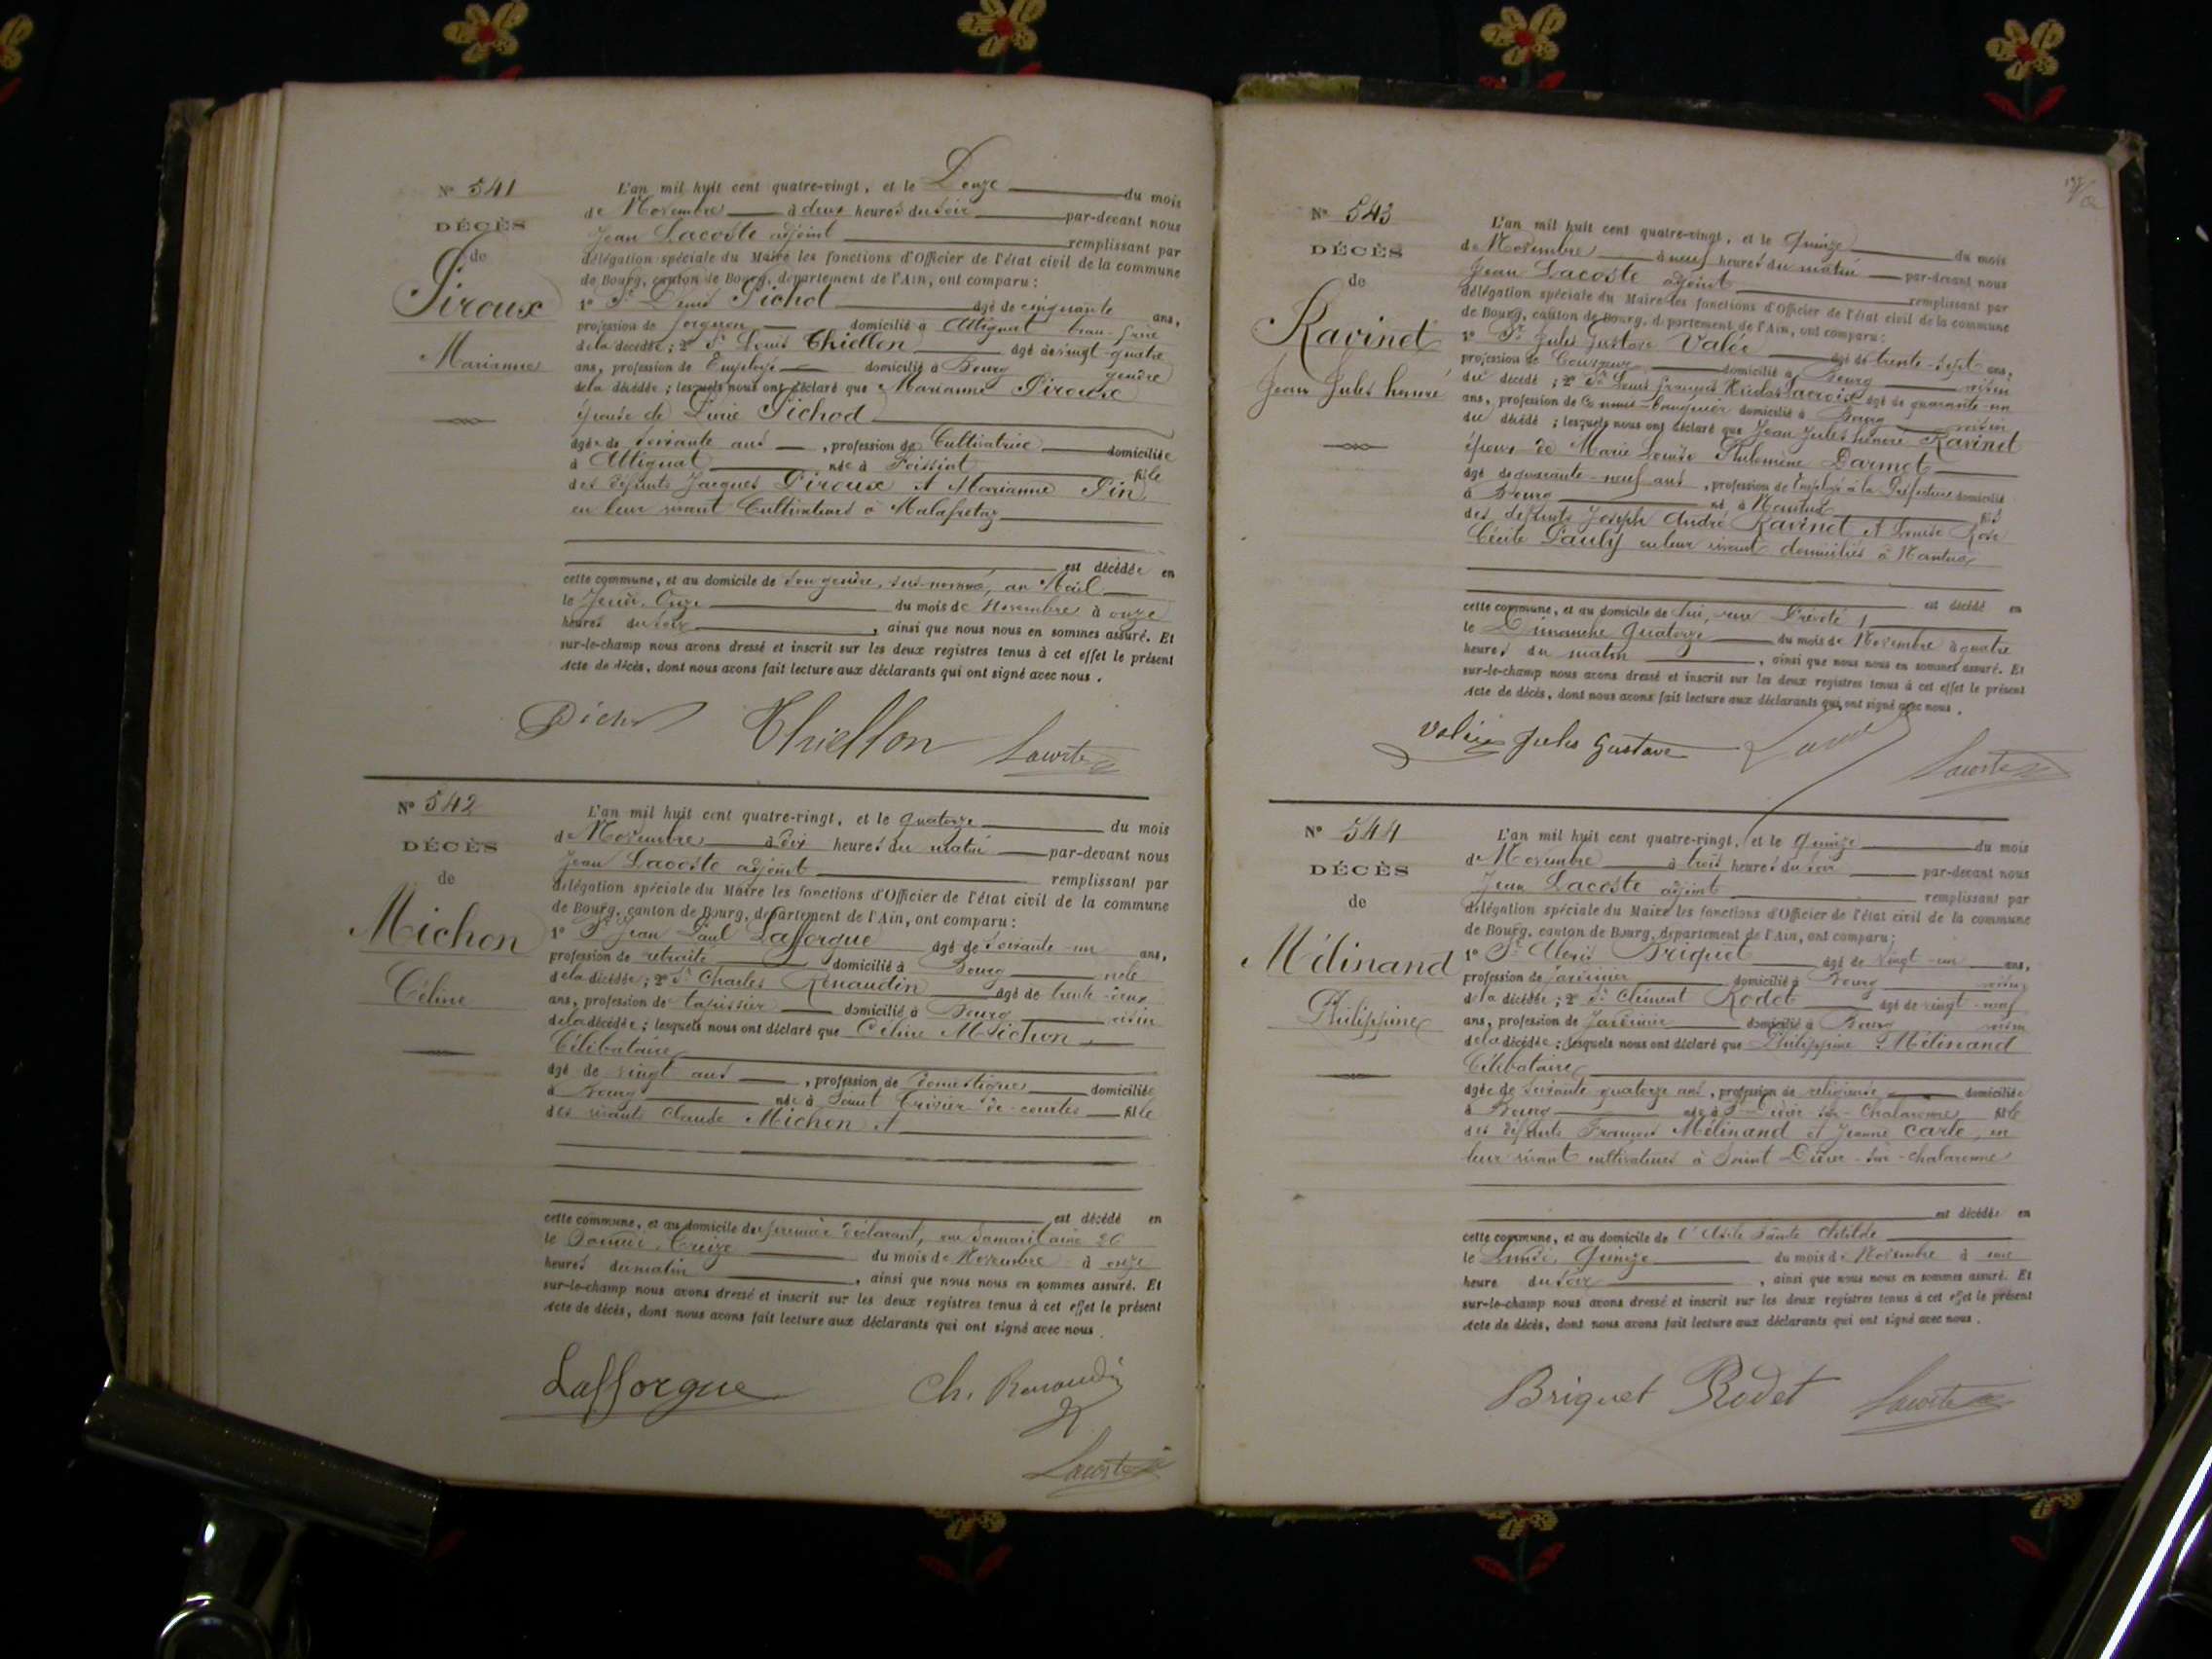 N° 541
DÉCÈS
de
Piroux
Marianne
L'an mil huit cent quatre-vingt, et le Douze du mois
de Novembre à deux heures du soir par-devant nous
Jean Lacoste adjoint remplissant par
délégation spéciale du Maire les fonctions d'Officier de l'état civil de la commune
de Bourg, canton de Bourg, département de l'Ain, ont comparu :
1° Sr Denis Pichod âgé de cinquante ans,
profession de domicilié à Attignat beau-frère
de la décédée ; 2° Sr Louis Thiellon âgé de vingt-quatre
ans, profession de Employé domicilié à Bourg gendre
de la décédée ; lesquels nous ont déclaré que Marianne Piroux
épouse de Pichod
âgée de soixante ans, profession de Cultivatrice domiciliée
à Attignat née à Foissiat fille
des défunts Jacques Piroux et Marianne Pin
en leur vivant Cultivateurs à Malafretaz
est décédée en
cette commune, et au domicile de son gendre, sus-nommé, au Mail
le Jeudi Onze du mois de Novembre à onze
heures du soir, ainsi que nous nous en sommes assuré. Et
sur-le-champ nous avons dressé et inscrit sur les deux registres tenus à cet effet le présent
Acte de décès, dont nous avons fait lecture aux déclarants qui ont signé avec nous.
Pichod Thiellon Lacoste
N° 542
DÉCÈS
de
Michon
Céline
L'an mil huit cent quatre-vingt, et le quatorze du mois
de Novembre à dix heures du matin par-devant nous
Jean Lacoste adjoint remplissant par
délégation spéciale du Maire les fonctions d'Officier de l'état civil de la commune
de Bourg, canton de Bourg, département de l'Ain, ont comparu :
1° Sr Jean Paul Lafforgue âgé de soixante-un ans,
profession de retraité domicilié à Bourg
de la décédée ; 2° Sr Charles Renaudin âgé de trente-deux
ans, profession de tapissier domicilié à Bourg voisin
de la décédée ; lesquels nous ont déclaré que Céline Michon
Célibataire
âgé de vingt ans, profession de domestique domiciliée
à Bourg née à Saint Trivier-de-courtes fille
des vivants Claude Michon et
est décédé en
cette commune, et au domicile du premier déclarant, rue Samaritaine 26
le Samedi Treize du mois de Novembre à onze
heures du matin, ainsi que nous nous en sommes assuré. Et
sur-le-champ nous avons dressé et inscrit sur les deux registres tenus à cet effet le présent
Acte de décès, dont nous avons fait lecture aux déclarants qui ont signé avec nous.
Lafforgue Ch. Renaudin
Lacoste
N° 543
DÉCÈS
de
Ravinet
Jean Jules honoré
L'an mil huit cent quatre-vingt, et le Quinze du mois
de Novembre à neuf heures du matin par-devant nous
Jean Lacoste adjoint remplissant par
délégation spéciale du Maire les fonctions d'Officier de l'état civil de la commune
de Bourg, canton de Bourg, département de l'Ain, ont comparu :
1° Sr Jules Gustave Valée âgé de trente-sept ans,
profession de domicilié à Bourg voisin
du décédé ; 2° Sr Louis François Lacroix âgé de quarante-un
ans, profession de Commis-banquier domicilié à Bourg voisin
du décédé ; lesquels nous ont déclaré que Jean Jules honoré Ravinet
époux de Marie Louise Philomène Darmet
âgé de quarante-neuf ans, profession de Employé à la Préfecture domicilié
à Bourg né à Nantua fils
des défunts Joseph André Ravinet et Louise Rose
Cécile Pauly en leur vivant domiciliés à Nantua
est décédé en
cette commune, et au domicile de lui, rue Prévoté 1
le Dimanche Quatorze du mois de Novembre à quatre
heures du matin, ainsi que nous nous en sommes assuré. Et
sur-le-champ nous avons dressé et inscrit sur les deux registres tenus à cet effet le présent
Acte de décès, dont nous avons fait lecture aux déclarants qui ont signé avec nous.
Jules Gustave Lacoste
N° 544
DÉCÈS
de
Mélinand
Philippine
L'an mil huit cent quatre-vingt, et le Quinze du mois
de Novembre à trois heures du soir par-devant nous
Jean Lacoste adjoint remplissant par
délégation spéciale du Maire les fonctions d'Officier de l'état civil de la commune
de Bourg, canton de Bourg, département de l'Ain, ont comparu :
1° Sr Alexis Briquet âgé de vingt-un ans,
profession de jardinier domicilié à Bourg voisin
de la décédée ; 2° Sr Clément Rodet âgé de vingt-neuf
ans, profession de Jardinier domicilié à Bourg voisin
de la décédée ; lesquels nous ont déclaré que Philippine Mélinand
Célibataire
âgée de soixante quatorze ans, profession de religieuse domiciliée
à Bourg née à St-Didier-sur-Chalaronne fille
des défunts François Mélinand et Jeanne Carle, en
leur vivant cultivateurs à Saint Didier-sur-chalaronne
est décédée en
cette commune, et au domicile de l'Asile Sainte Clotilde
le Lundi Quinze du mois de Novembre à une
heure du soir, ainsi que nous nous en sommes assuré. Et
sur-le-champ nous avons dressé et inscrit sur les deux registres tenus à cet effet le présent
Acte de décès, dont nous avons fait lecture aux déclarants qui ont signé avec nous.
Briquet Rodet Lacoste